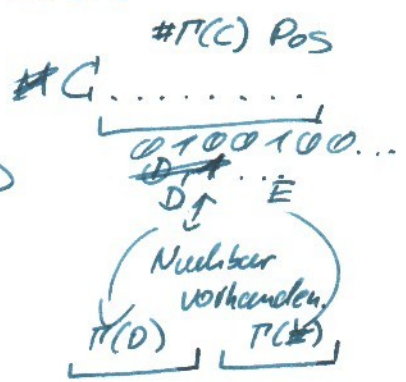 #Γ(C) Pos
#C........
0100100...
D ... E
Nachbar
vorhanden.
Γ(D) Γ(E)